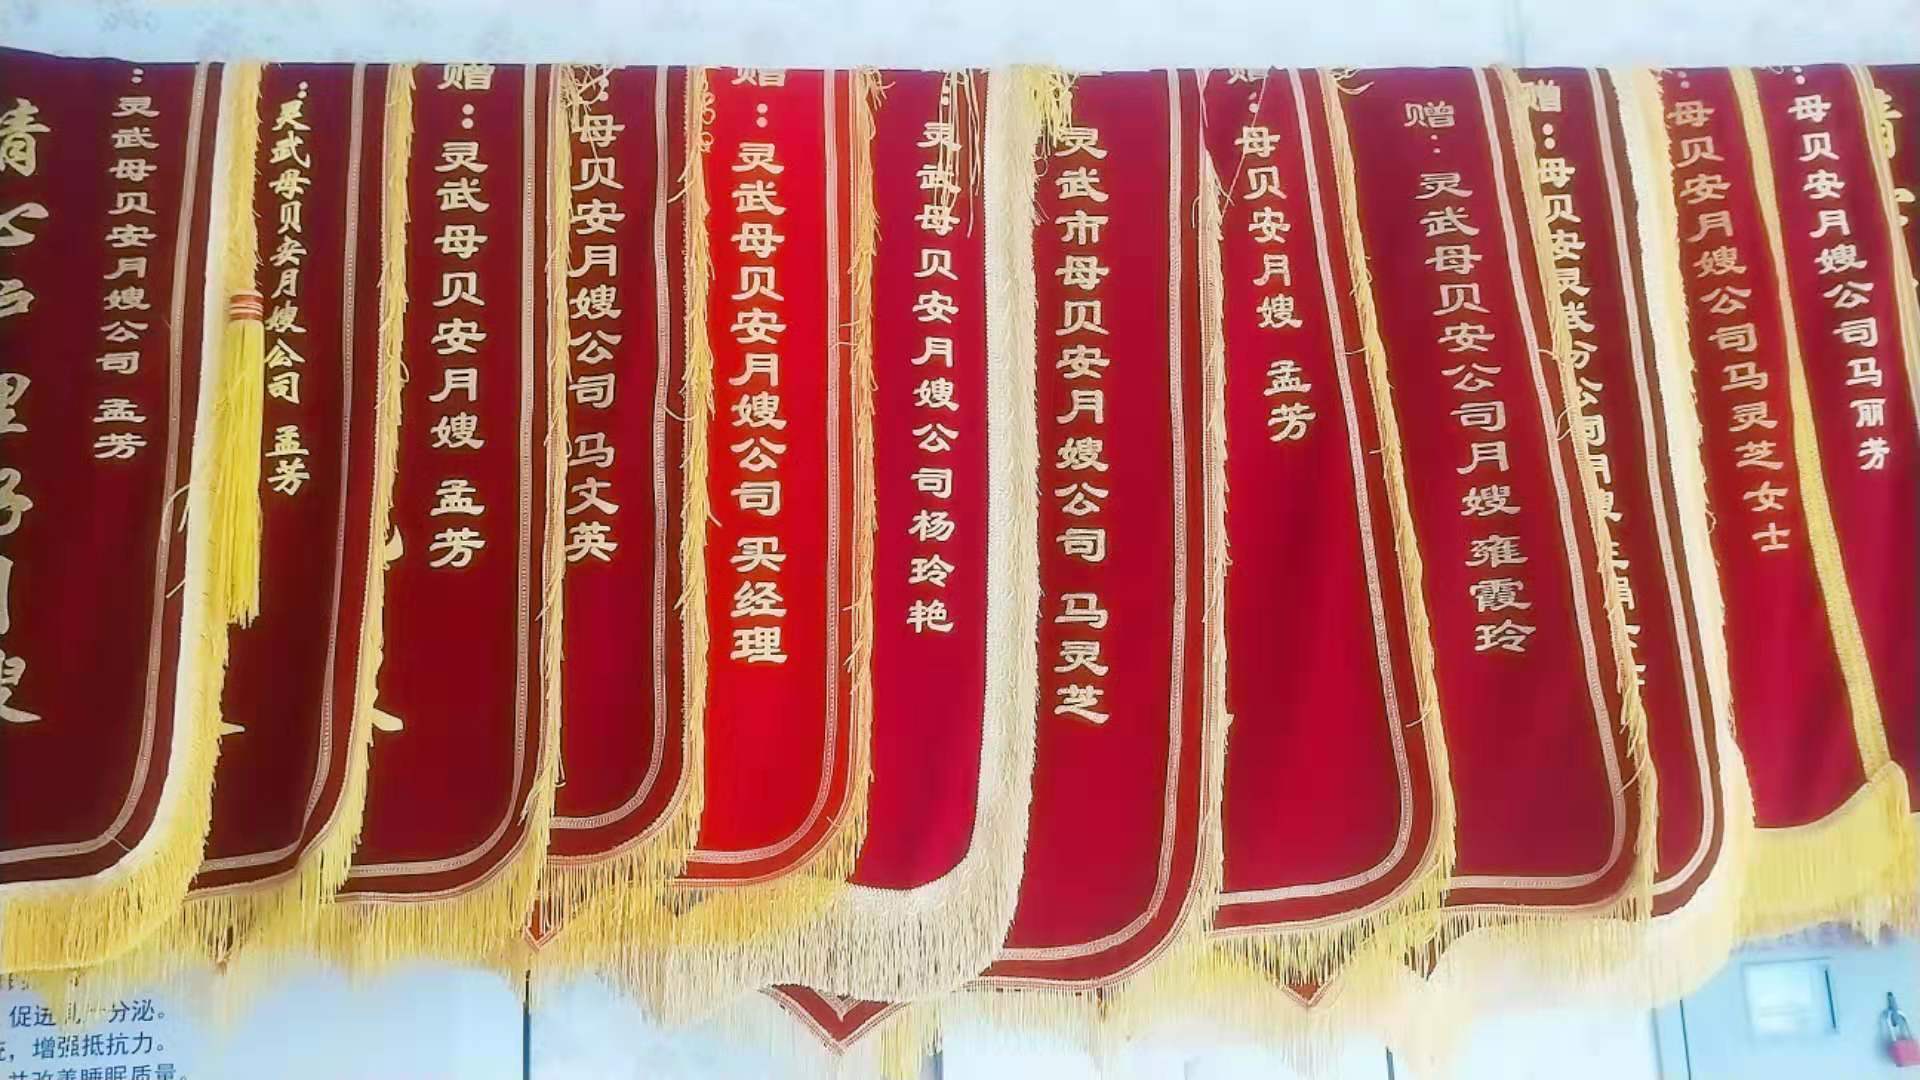 ：灵武母贝安月嫂公司 孟芳
：灵武母贝安月嫂公司 孟芳
赠：灵武母贝安月嫂 孟芳
：母贝安月嫂公司 马文英
赠：灵武母贝安月嫂公司 买经理
：灵武母贝安月嫂公司杨玲艳
灵武市母贝安月嫂公司 马灵芝
赠：母贝安月嫂 孟芳
赠：灵武母贝安公司月嫂 雍霞玲
赠：母贝安灵武分公司月嫂
：母贝安月嫂公司马灵芝女士
：母贝安月嫂公司马丽芳
促进 分泌。
，增强抵抗力。
并改善睡眠质量。